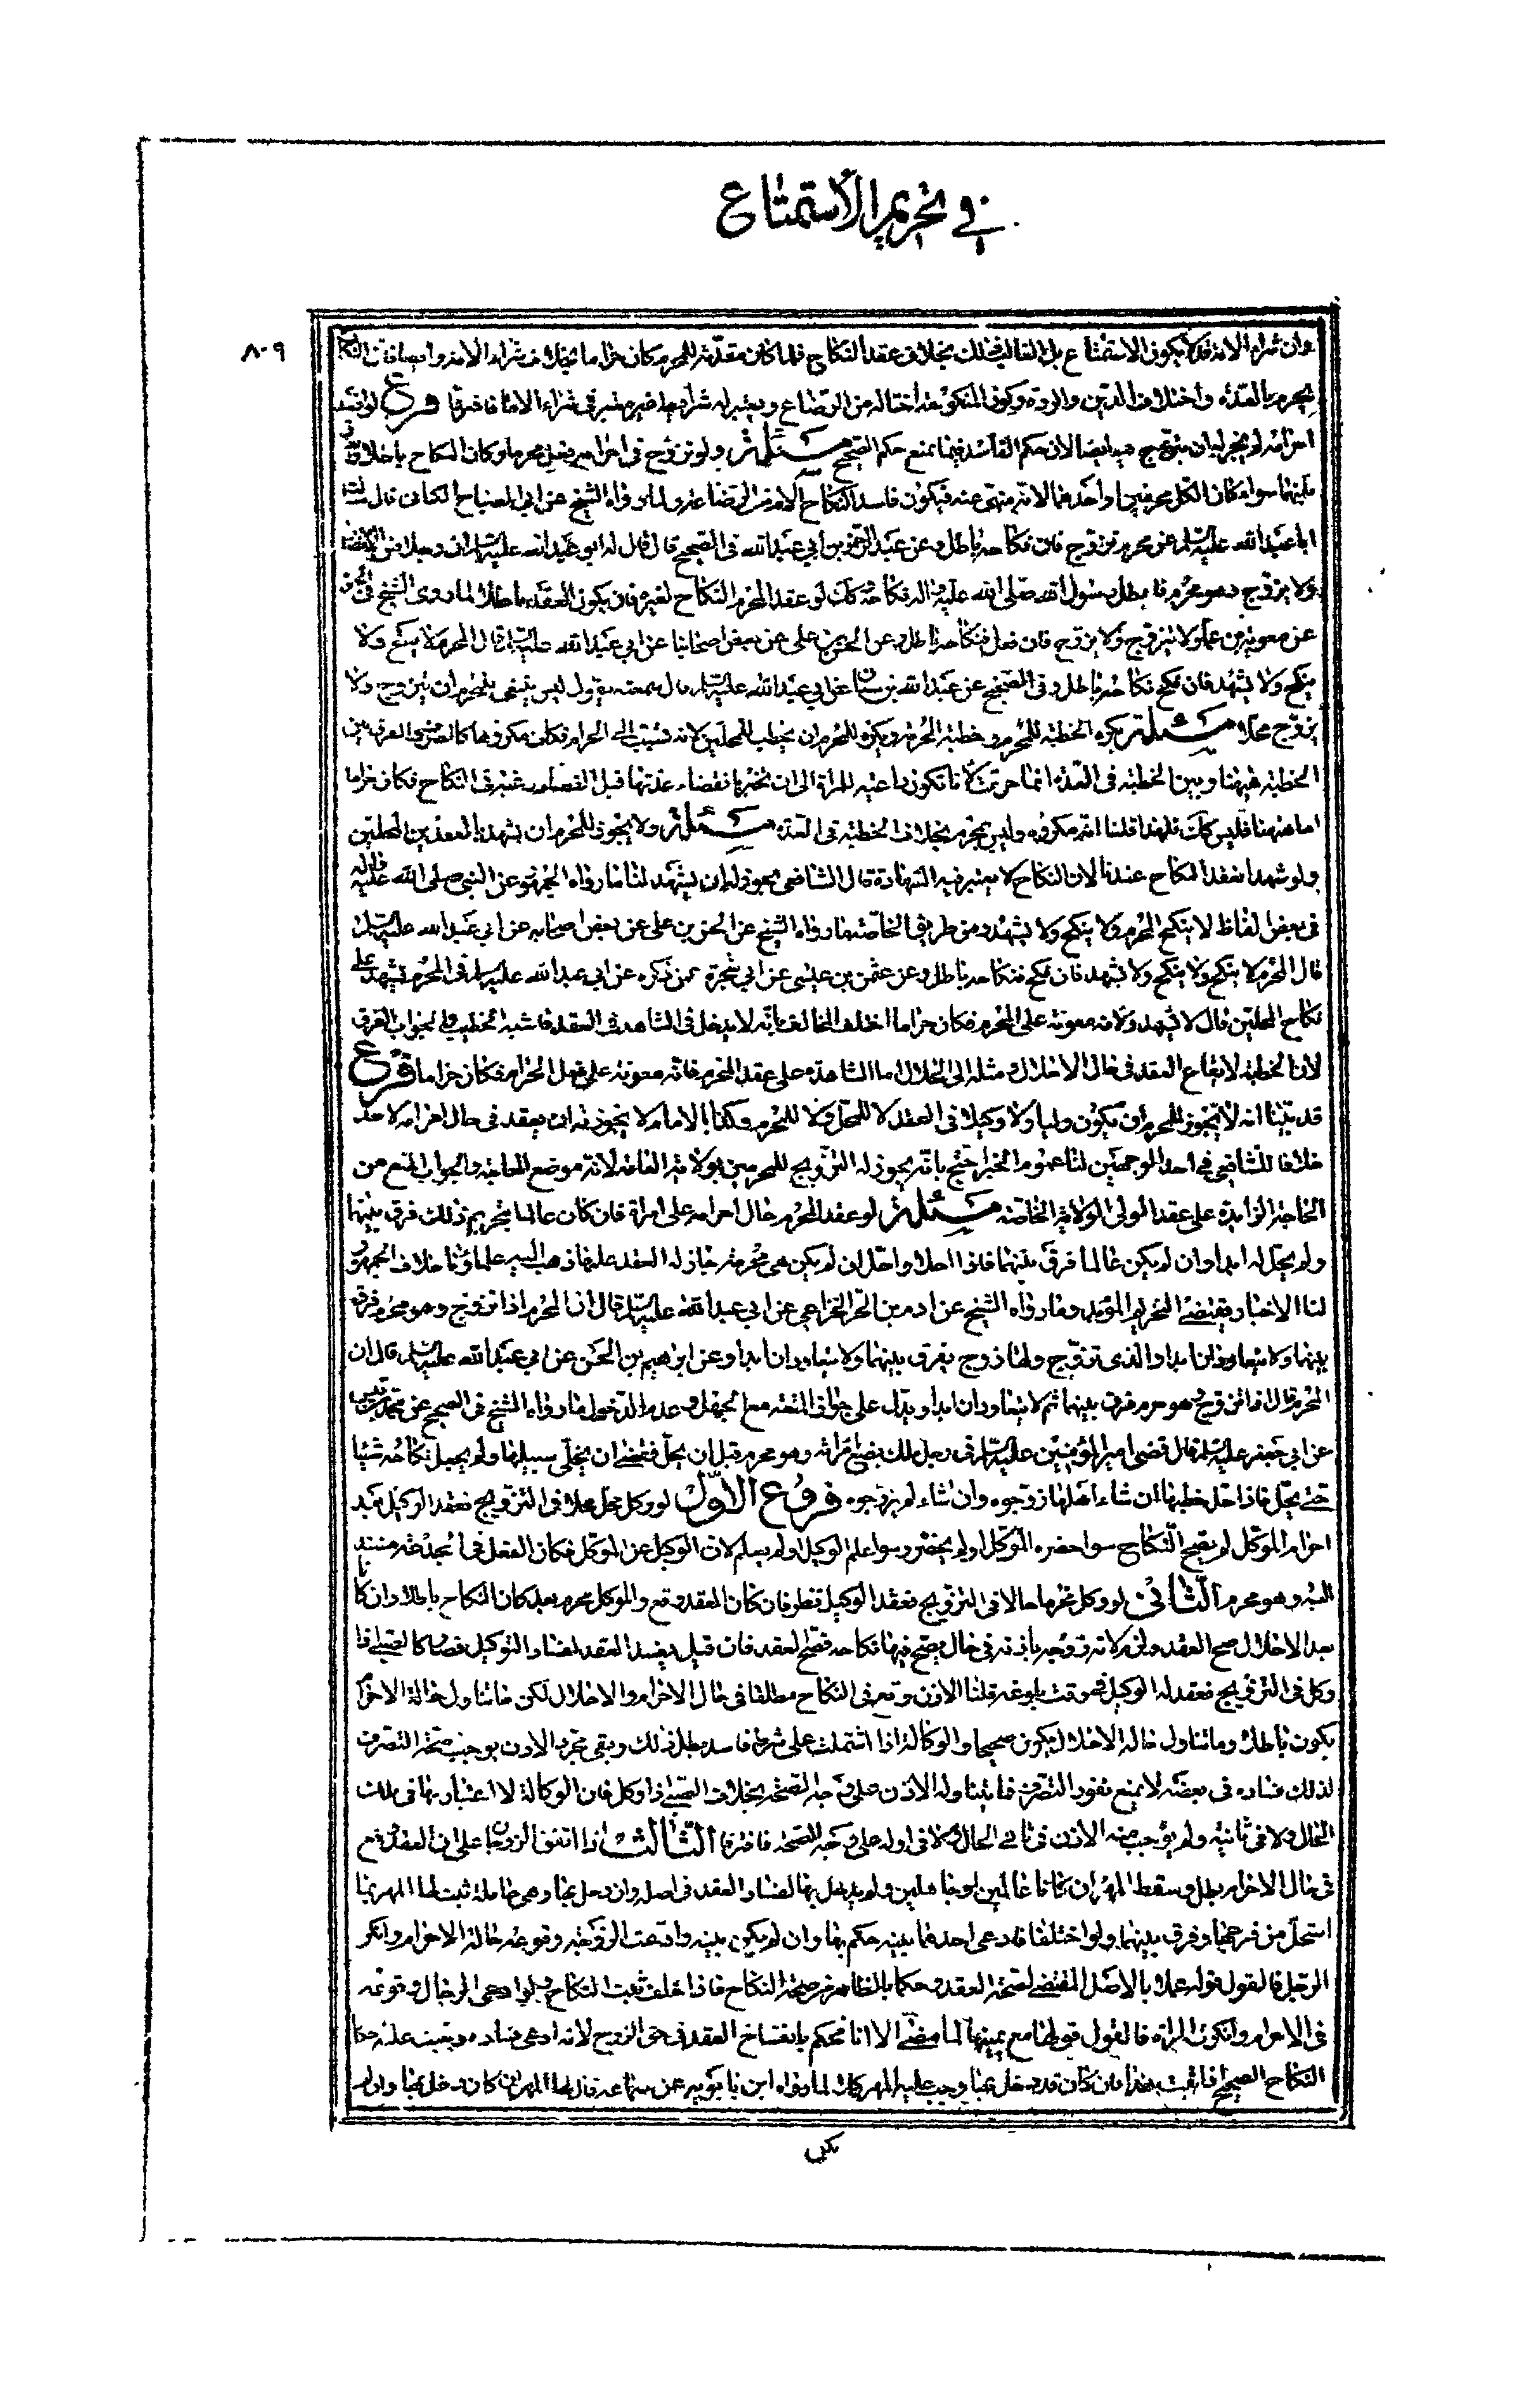 في تحريم الاستمتاع
٨٠٩
وان شراء الامة قد لا يكون الاستمتاع بل الغالب ذلك بخلاف عقد النكاح فلما كان مقدمته للمحرم كان حراما بخلاف شراء الامة وايضا فان النكاح
يحرم بالعدة واختلاف الدين والردة وكون المنكوحة اختا له من الرضاع ويعتبر له شرايط غير معتبر في شراء الاماء فافترقا فرع لو افسد
احرامه لم يجز له ان يتزوج فيه ايضا لان حكم الفاسد فيما يمنع حكم الصحيح مسئلة ولو تزوج في احرامه بفعل محرما وكان النكاح باطلا وفرق
بينهما سواء كان الكل محرمين او احدهما لانه منهي عنه فيكون فاسدا كنكاح المرأة من الرضاعة ولما رواه الشيخ عن ابي الصباح الكناني قال سئلت
ابا عبد الله عليه السلم عن محرم تزوج قال نكاحه باطل وعن عبد الرحمن بن ابي عبد الله في الصحيح قال قال له ابو عبد الله عليه السلم ان رجلا من الانصار
تزوج وهو محرم فابطل رسول الله صلى الله عليه واله نكاحه كك لو عقد المحرم النكاح لغيره فان يكون العقد باطلا لما روى الشيخ في الصحيح
عن معوية بن عمار ولا يتزوج ولا يزوج فان فعل فنكاحه باطل وعن الحسن بن علي عن بعض اصحابنا عن ابي عبد الله عليه السلم قال المحرم لا ينكح ولا
ينكح ولا يشهد فان نكح نكاحه باطل وفي الصحيح عن عبد الله بن سنان عن ابي عبد الله عليه السلم قال سمعته يقول ليس ينبغي للمحرم ان يتزوج ولا
يزوج محلا مسئلة يكره الخطبة للمحرم وخطبة المحرمة ويكره للمحرم ان يخطب للمحلين لانه تسبب الى الحرام فكان مكروها كالصرف والفرق بين
الخطبة هيهنا وبين الخطبة في العدة انما حرمت لانها تكون داعية للمرأة الى ان تخبر بانقضاء عدتها قبل انقضاء رغبة في النكاح فكان حراما
اما هيهنا فليس كك فلهذا قلنا انه مكروه وليس بمحرم بخلاف الخطبة في العدة مسئلة ولا يجوز للمحرم ان يشهد بالعقد بين المحلين
ولو شهد انعقد النكاح عندنا لان النكاح لا يعتبر فيه الشهادة قال الشافعي يجوز له ان يشهد لنا ما رواه الجمهور عن النبي صلى الله عليه واله
في بعض الفاظ لا ينكح المحرم ولا ينكح ولا يشهد ومن طريق الخاصة ما رواه الشيخ عن الحسن بن علي عن بعض اصحابه عن ابي عبد الله عليه السلم
قال المحرم لا ينكح ولا ينكح ولا يشهد فان نكح فنكاحه باطل وعن عثمن بن عيسى عن ابي شجرة عمن ذكره عن ابي عبد الله عليه السلم في المحرم يشهد على
نكاح المحلين قال لا يشهد ولانه معونة على المحرم فكان حراما اختلف المخالف بانه لا يدخل في الشاهد في العقد فاشبه الخطيب والجواب الفرق
لان الخطبة لايقاع العقد في حال الاحلال ومثله الى الحلال اما الشاهدة على عقد المحرم فانه معونة على فعل الحرام فكان حراما فرع
قد بينا انه لا يجوز للمحرم ان يكون وليا ولا وكيلا في العقد لا للمحل ولا للمحرم وكذا الامام لا يجوز له ان يعقد في حال احرامه لاحد
خلافا للشافعي في احد الوجهين لنا عموم الخبر احتج بانه يجوز له التزويج للمحرمين بولايته العامة لانه موضع الحاجة والجواب المنع من
الحاجة الزايدة على عقد الولي الولاية الخاصة مسئلة لو عقد المحرم حال احرامه على امرأة فان كان عالما بتحريم ذلك فرق بينهما
ولم يحل له ابدا وان لم يكن عالما فرق بينهما فاذا احلا او احل ان لم يكن هي محرمة جاز له العقد عليها ذهب اليه علماؤنا خلافا للجمهور
لنا الاخبار يقتضي التحريم المؤبد وما رواه الشيخ عن اديم بن الحر الخزاعي عن ابي عبد الله عليه السلم قال ان المحرم اذا تزوج وهو محرم فرق
بينهما ولا يتعاودان ابدا والذي تزوج ولها زوج يفرق بينهما ولا يتعاودان ابدا وعن ابراهيم بن الحسن عن ابي عبد الله عليه السلم قال ان
المحرم قال اذا تزوج وهو محرم فرق بينهما ثم لا يتعاودان ابدا ويدل على جواز المتعة مع الجهل وعدم الدخول ما رواه الشيخ في الصحيح عن محمد بن قيس
عن ابي جعفر عليه السلم قال قضى امير المؤمنين عليه السلم في رجل ملك بضع امرأة وهو محرم قبل ان يحل فقضى ان يخلي سبيلها ولم يجعل نكاحه شيئا
حتى يحل فاذا احل خطبها ان شاء اهلها زوجوه وان شاء لم يزوجوه فروع الاول لو وكل محل محلا في التزويج فعقد الوكيل بعد
احرام الموكل لم يصح النكاح سواء حضره الموكل او لم يحضر وسواء علم الوكيل او لم يعلم لان الوكيل عن الموكل فكان الفعل في الحقيقة مستند
اليه وهو محرم الثاني لو وكل محرما حلالا في التزويج فعقد الوكيل فنظر فان كان العقد وقع والموكل محرم بعد كان النكاح باطلا وان كان
بعد الاحلال صح العقد ولزم لانه زوجه باذنه في حال يصح فيها نكاحه فصح العقد فان قيل يفسد العقد لفساد التوكيل فصار كالصبي اذا
وكل في التزويج فعقد له الوكيل وقت بلوغه قلنا الاذن وقع في النكاح مطلقا في حال الاحرام والاحلال لكن ما تناول حالة الاحرام
يكون باطلا وما تناول حالة الاحلال يكون صحيحا والوكالة اذا اشتملت على شرط فاسد بطل ذلك وبقي مجرد الاذن يوجب صحة التصرف
لذلك فساده في بعضه لا يمنع نفوذ التصرف فما يتناوله الاذن على وجه الصحة بخلاف الصبي اذا وكل فان الوكالة لا اعتبار بها في تلك
الحال ولا في ثانيه ولم يوجب صحة الاذن في ثاني الحال ولا في اوله على وجه الصحة فافترقا الثالث اذا اتفق الزوجان على ان العقد وقع
في حال الاحرام بطل وسقط المهر ان كانا عالمين او جاهلين ولم يدخل بها لفساد العقد في اصله وان دخل بها وهي جاهلة ثبت لها المهر بما
استحل من فرجها وفرق بينهما ولو اختلفا فادعى احدهما بينة حكم بها وان لم يكن بينة وادعت الزوجة وقوعه حالة الاحرام وانكر
الرجل فالقول قوله عملا بالاصل المقتضي لصحة العقد وحكما بالظاهر من صحة النكاح فاذا حلف ثبت النكاح ولو ادعى الرجال وقوعه
في الاحرام وانكرت المرأة فالقول قولها مع يمينها لما مضى الا انا نحكم بانفساخ العقد في حق الزوج لانه ادعى فساده ويثبت عليه حكم
النكاح الصحيح اذا ثبت هذا فان كان قد دخل بها وجب عليه المهر كملا لما رواه ابن بابويه عن سماعة قال لها المهر ان كان دخل بها وان لم
يكن